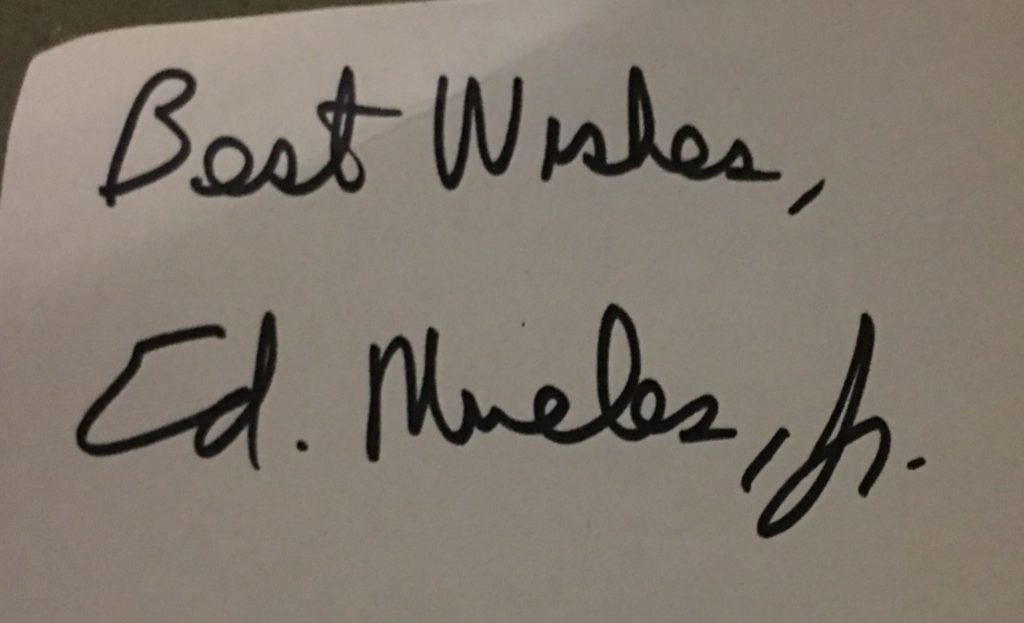 Best Wishes,
Ed. Mireles, Jr.